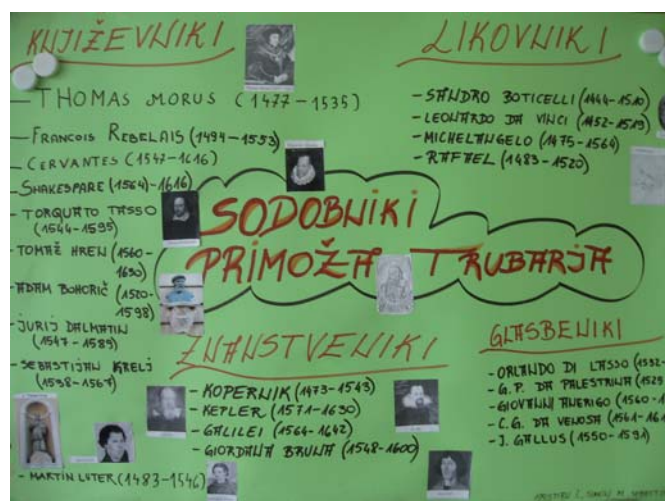 KNJIŽEVNIKI
– THOMAS MORUS (1477–1535)
– FRANCOIS REBELAIS (1494–1553)
– CERVANTES (1547–1616)
– SHAKESPARE (1564)–1616)
– TORQUATO TASSO
(1544–1595)
– TOMAŽ HREN (1560–
1630)
– ADAM BOHORIČ (1520–
1598)
– JURIJ DALMATIN
(1547–1589)
– SEBASTIJAN KRELJ
(1538–1567)
– MARTIN LUTER (1483–1546)
LIKOVNIKI
– SANDRO BOTICELLI (1444–1510)
– LEONARDO DA VINCI (1452–1519)
– MICHELANGELO (1475–1564)
– RAFAEL (1483–1520)
SODOBNIKI
PRIMOŽA TRUBARJA
ZNANSTVENIKI
– KOPERNIK (1473–1543)
– KEPLER (1571–1630)
– GALILEI (1564–1642)
– GIORDANA BRUNA (1548–1600)
GLASBENIKI
– ORLANDO DI LASSO (1532–
– G.P. DA PALESTRINA (1525
– GIOVANNI ANERIGO (1560–1
– C.G. DA VENOSA (1561–161
– J. GALLUS (1550–1591)